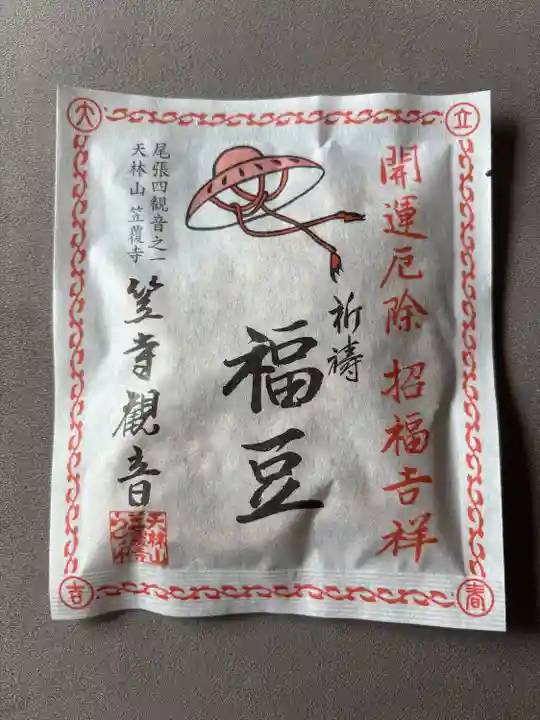 立
春
大
吉
開運厄除 招福吉祥
祈祷
福豆
尾張四観音之一
天林山 笠覆寺
笠寺觀音